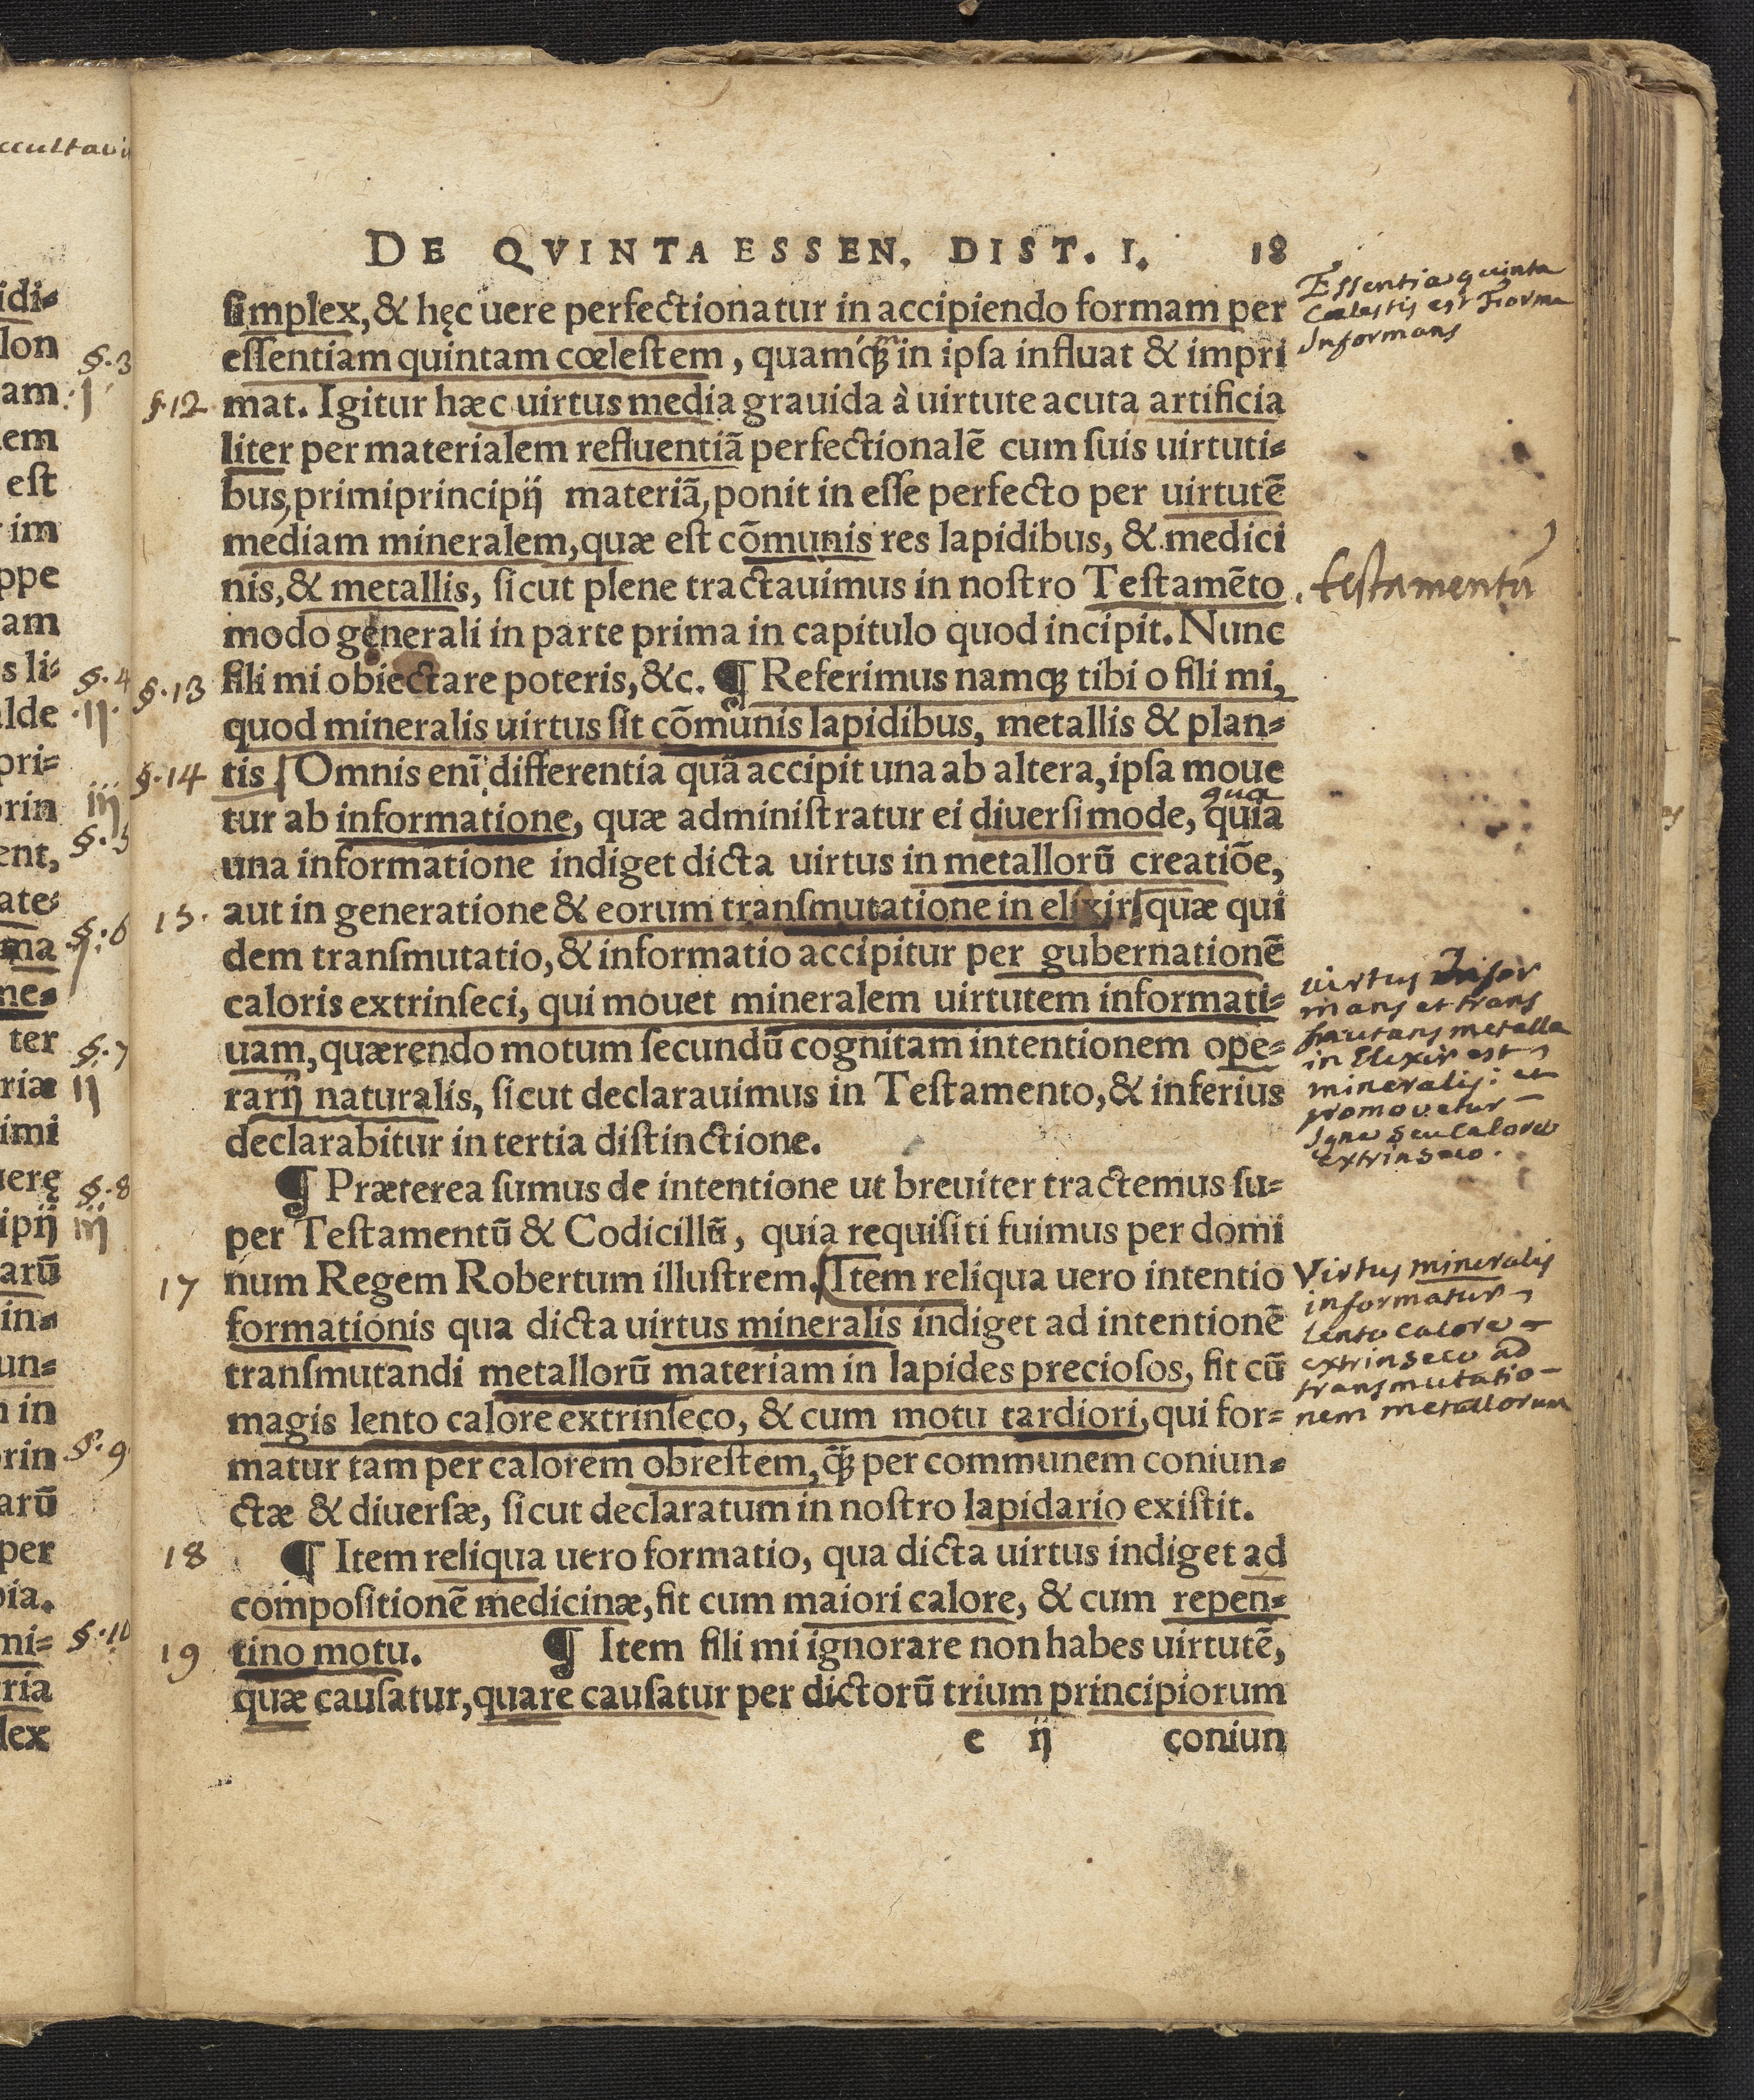 ccultavi
idi⸗
lon
am
em
est
im
ppe
am
s li⸗
alde
pri⸗
rin
ent,
ate⸗
ma
ne⸗
ter
riæ
imi
uerę
ipij
arū
in⸗
un⸗
n in
rin
arū
per
pia.
mi⸗
ria
lex
§.3
j
§.4
·ij·
iij
§.5
§.6
j
§.7
ij
§.8
iij
§.9
§.10
DE QVINTA ESSEN. DIST. I. 18
ſimplex, & hęc uere perfectionatur in accipiendo formam per
eſſentiam quintam cœleſtem, quamq́ꝫ in ipſa influat & impri
§.12 mat. Igitur hæc uirtus media grauida à uirtute acuta artificia
liter per materialem refluentiā perfectionalē cum ſuis uirtuti⸗
bus, primiprincipij materiā, ponit in eſſe perfecto per uirtutē
mediam mineralem, quæ eſt cōmunis res lapidibus, & medici
nis, & metallis, ſicut plene tractauimus in noſtro Teſtamēto
modo generali in parte prima in capitulo quod incipit. Nunc
§.13 fili mi obiectare poteris, &c. ¶ Referimus namqꝫ tibi o fili mi,
quod mineralis uirtus ſit cōmunis lapidibus, metallis & plan⸗
§.14 tis Omnis enī differentia quā accipit una ab altera, ipſa moue
qua
tur ab informatione, quæ adminiſtratur ei diuerſimode, quia
una informatione indiget dicta uirtus in metallorū creatiōe,
15. aut in generatione & eorum tranſmutatione in elixir quæ qui
dem tranſmutatio, & informatio accipitur per gubernationē
caloris extrinſeci, qui mouet mineralem uirtutem informati⸗
uam, quærendo motum ſecundū cognitam intentionem ope⸗
rarij naturalis, ſicut declarauimus in Teſtamento, & inferius
declarabitur in tertia diſtinctione.
¶ Præterea ſumus de intentione ut breuiter tractemus ſu⸗
per Teſtamentū & Codicillū, quia requiſiti fuimus per domi
17 num Regem Robertum illuſtrem. Item reliqua uero intentio
formationis qua dicta uirtus mineralis indiget ad intentionē
tranſmutandi metallorū materiam in lapides precioſos, fit cū
magis lento calore extrinſeco, & cum motu tardiori, qui for⸗
matur tam per calorem obreſtem, q̄ꝫ per communem coniun⸗
ctæ & diuerſæ, ſicut declaratum in noſtro lapidario exiſtit.
18 ¶ Item reliqua uero formatio, qua dicta uirtus indiget ad
compoſitionē medicinæ, fit cum maiori calore, & cum repen⸗
19 tino motu. ¶ Item fili mi ignorare non habes uirtutē,
quæ cauſatur, quare cauſatur per dictorū trium principiorum
e ij coniun
Essentia quinta
Cœlestis est Forma
Informans
testamentū
virtus Infor
mans et trans
mutans metalla
in Elixir est
mineralis: et
promovetur
Igne seu calore
extrinseco.
Virtus mineralis
informatur
lento calore
extrinseco ad
transmutatio-
nem metallorum